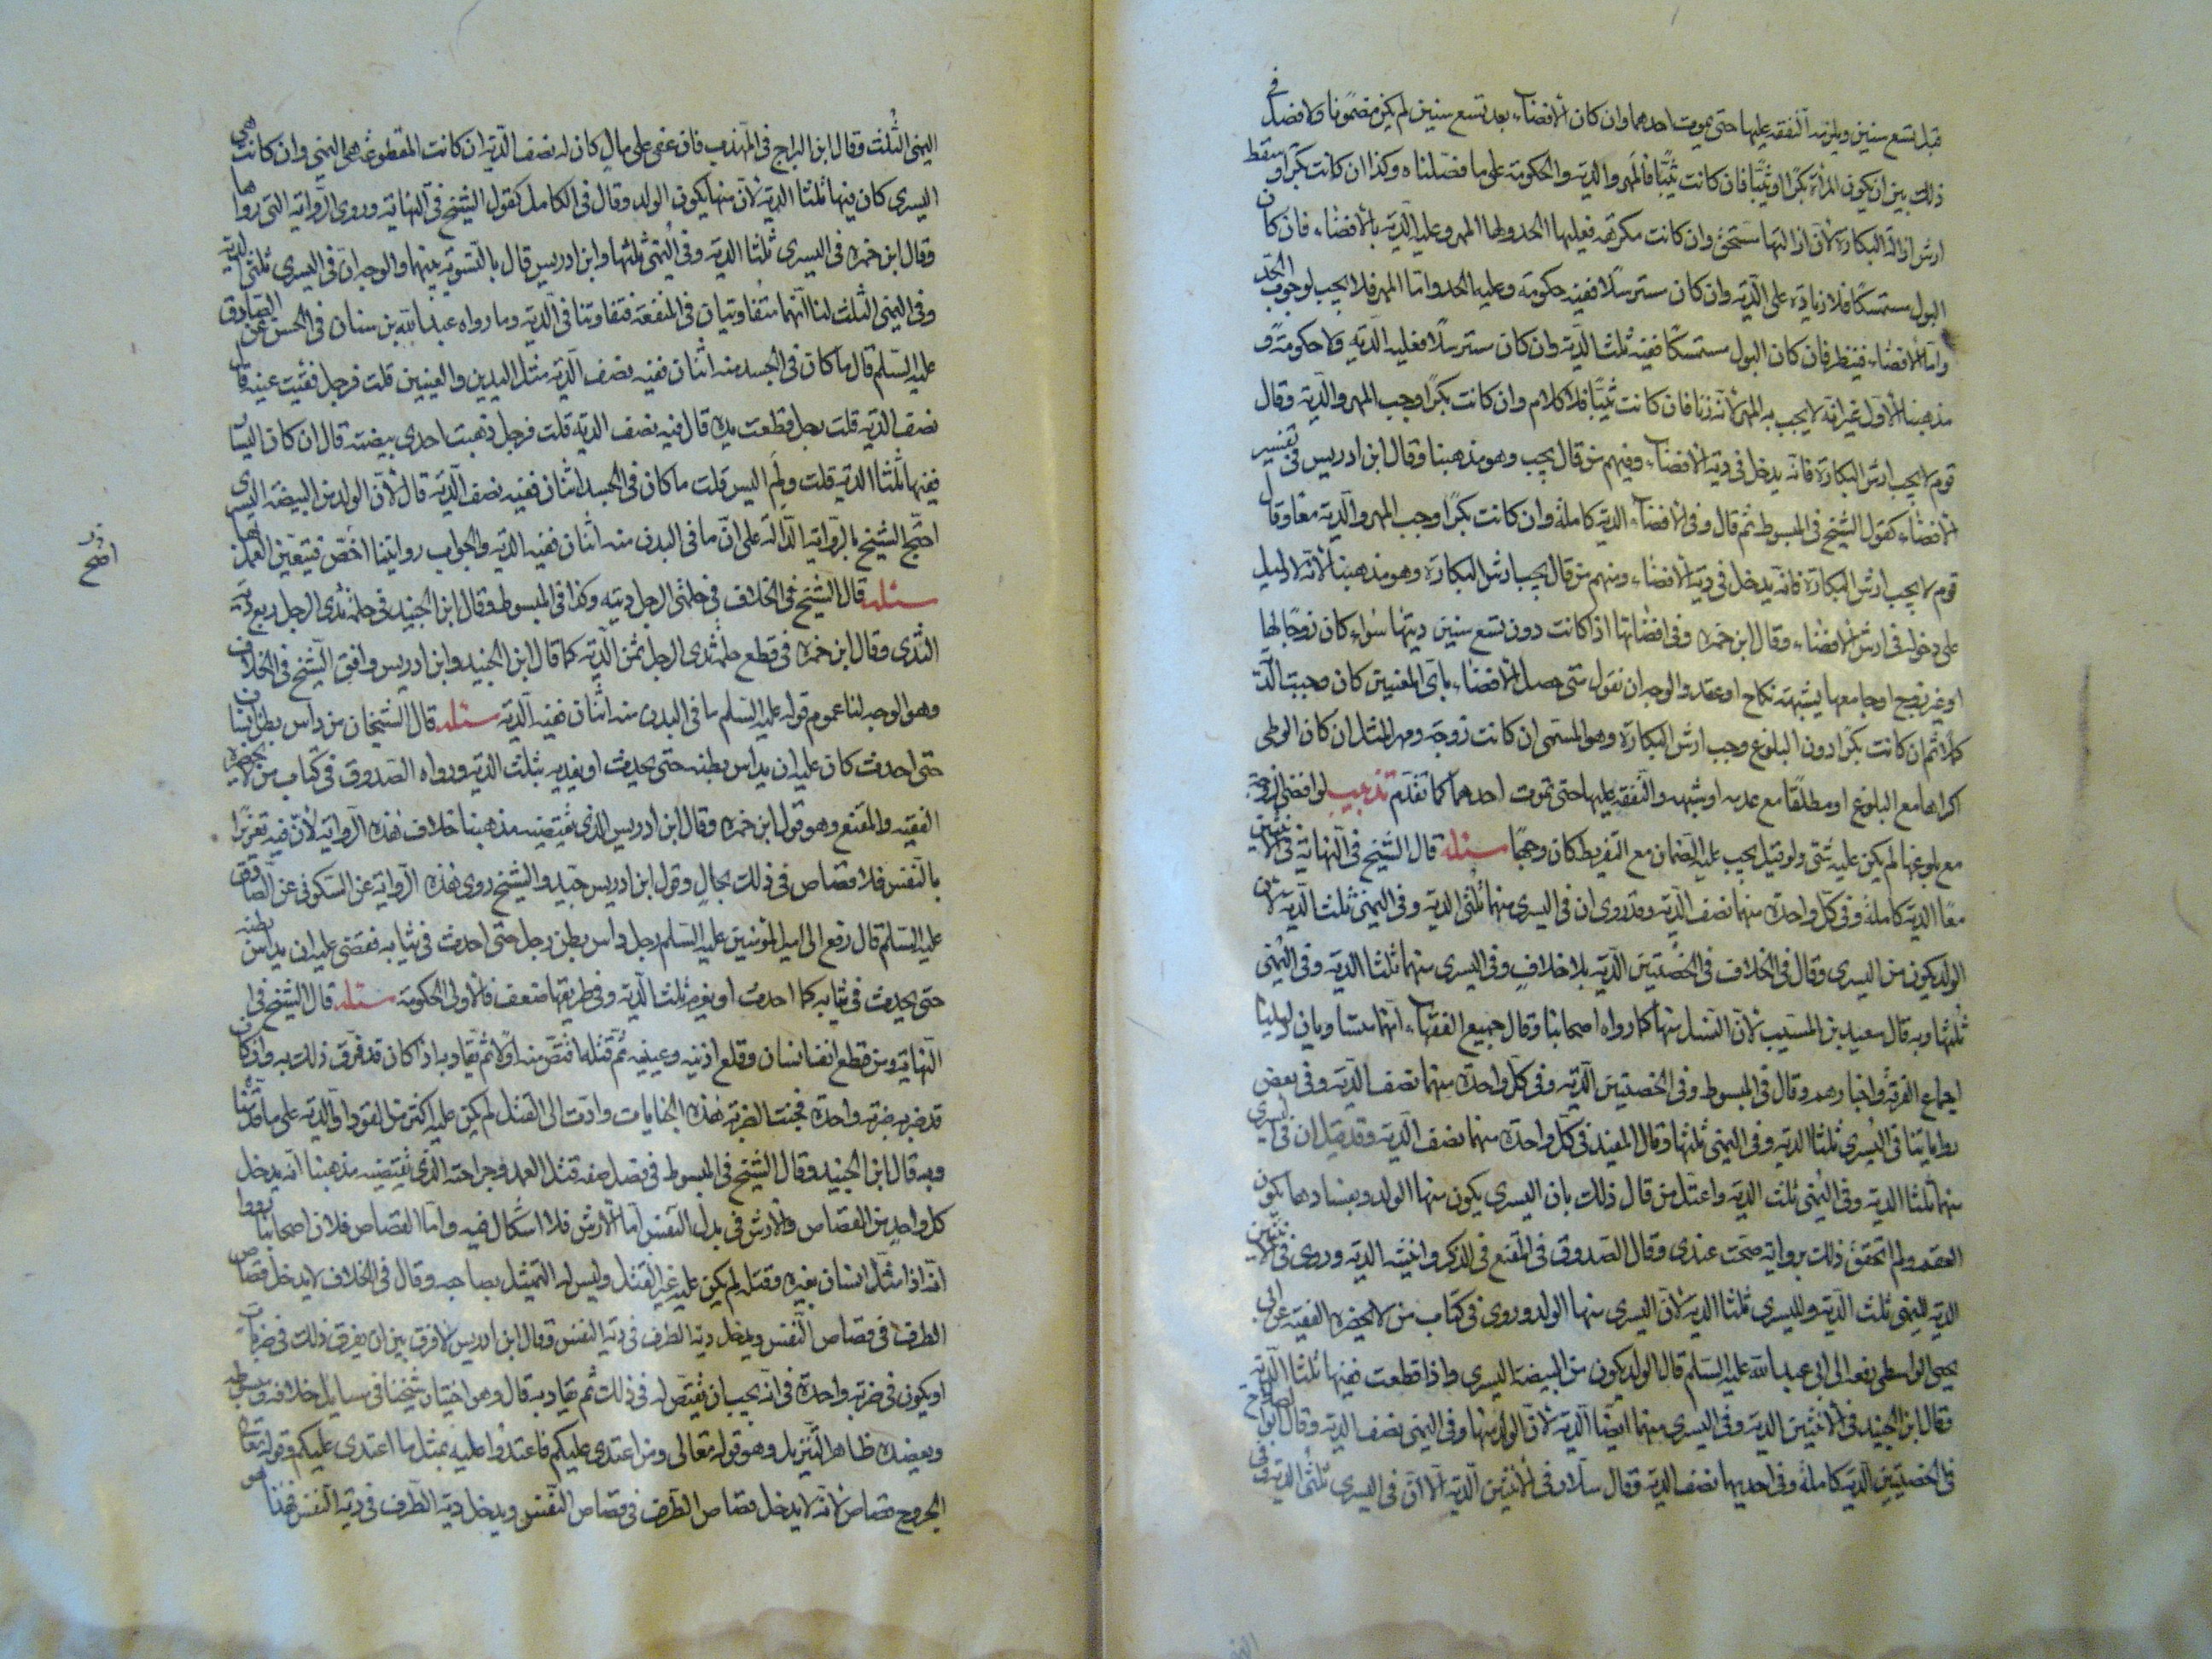 قبل تسع سنين ويلزمه النفقه عليها حتى يموت احدهما وان كان الافضاء بعد تسع سنين لم يكن مضمونا ولا فصل في
ذلك بين ان يكون المرأة بكرًا او ثيبًا فان كانت ثيبًا فالمهر والدية والحكومة على ما فصلناه وكذا ان كانت بكرا وسقط
ارش ازالة البكارة لان ازالتها مستحق وان كانت مكرهة فعليها الحد ولها المهر وعليه الدية بالافضاء فان كان
البول مستمسكا فلا زيادة على الدية وان كان مسترسلا ففيه حكومة وعليه الحد واما المهر فلا يجب لوجوب الحد
واما الافضاء فينظر فان كان البول مستمسكا ففيه ثلث الدية وان كان مسترسلا فعليه الدية ولا حكومة و
مذهبنا الاول غير انه لا يجب به المهر لانه زنا فان كانت ثيبًا فلا كلام وان كانت بكرًا وجب المهر والدية وقال
قوم لا يجب ارش البكارة فانه يدخل في دية الافضاء وفيهم من قال يجب وهو مذهبنا وقال ابن ادريس في تفسير
الافضاء كقول الشيخ في المبسوط ثم قال وفي الافضاء الدية كاملة وان كانت بكرًا وجب المهر والدية معا وقال
قوم لا يجب ارش البكارة فانه يدخل في دية الافضاء ومنهم من قال يجب ارش البكارة وهو مذهبنا لانه لا دليل
على دخوله في ارش الافضاء وقال ابن حمزه وفي افضائها اذا كانت دون تسع سنين ديتها سواء كان زوجًا لها
او غير زوج او جامعها بشبهة نكاح او عقد والوجه ان نقول متى حصل الافضاء باى المعنيين كان وجبت الدية
كملا ثم ان كانت بكرا دون البلوغ وجب ارش البكارة وهو المسمى ان كانت زوجة ومهر المثل ان كان الوطى
اكراها مع البلوغ او مطلقا مع عدمه او شبهه والنفقه عليها حتى تموت احدهما كما تقدم تذنيب لو افضى الزوجة
مع بلوغها لم يكن عليه شئ ولو قيل يجب عليه الضمان مع التفريط كان وجها مسئلة قال الشيخ في النهاية في الانثيين
معا الدية كاملة وفي كل واحدة منهما نصف الدية وقد روى ان في اليسرى منهما ثلثى الدية وفي اليمنى ثلث الدية لان
الولد يكون من اليسرى وقال في الخلاف في الخصيتين الدية بلا خلاف وفي اليسرى منهما ثلثا الدية وفي اليمنى
ثلثها وبه قال سعيد بن المسيب لان النسل منها كما رواه اصحابنا وقال جميع الفقهاء انهما متساويان دليلنا
اجماع الفرقة واخبارهم وقال في المبسوط وفي الخصيتين الدية وفي كل واحدة منهما نصف الدية وفي بعض
رواياتنا في اليسرى ثلثا الدية وفي اليمنى ثلثها وقال المفيد في كل واحدة منهما نصف الدية وقد قيل ان في اليسرى
منهما ثلثا الدية وفي اليمنى ثلث الدية واعتل من قال ذلك بان اليسرى يكون منها الولد وبفسادها يكون
العقم ولم اتحقق ذلك برواية صحت عندى وقال الصدوق في المقنع في الذكر وانثييه الدية وروى في الانثيين
الدية لليمنى ثلث الدية ولليسرى ثلثا الدية لان اليسرى منها الولد وروى في كتاب من لا يحضره الفقيه عن ابى
يحيى الواسطى رفعه الى ابى عبد الله عليه السلم قال الولد يكون من البيضة اليسرى واذا قطعت ففيها ثلثا الدية
وقال ابن الجنيد في الانثيين الدية وفي اليسرى منهما ايضا الدية لان الولد منها وفي اليمنى نصف الدية وقال ابو الصلاح
في الخصيتين الدية كاملة وفي احديهما نصف الدية وقال سلار في الانثيين الدية الا ان في اليسرى ثلثى الدية وفي
اليمنى الثلث وقال ابن البراج في المهذب فان عفى على مال كان له نصف الدية ان كانت المقطوعة هى اليمنى وان كانت هى
اليسرى كان فيها ثلثا الدية لان منها يكون الولد وقال في الكامل كقول الشيخ في النهاية وروى الرواية التى رواها
وقال ابن حمزه في اليسرى ثلثا الدية وفي اليمنى ثلثها وابن ادريس قال بالتسوية بينهما والوجه ان في اليسرى ثلثى الدية
وفي اليمنى الثلث لنا انهما متفاوتيان في المنفعة فتفاوتتا في الدية وما رواه عبد الله بن سنان في الحسن عن الصادق
عليه السلم قال ما كان في الجسد منه اثنان ففيه نصف الدية مثل اليدين والعينين قلت فرجل فقئت عينه قال
نصف الدية قلت رجل قطعت يده قال فيه نصف الدية قلت فرجل ذهبت احدى بيضتيه قال ان كان اليسار
ففيها ثلثا الدية قلت ولم اليس قلت ما كان في الجسد اثنان ففيه نصف الدية قال لان الولد من البيضة اليسرى
احتج الشيخ بالرواية الدالة على ان ما في البدن منه اثنان ففيه الدية والجواب روايتنا اخص فيتعين العمل بها
مسئلة قال الشيخ في الخلاف في حلمتى الرجل ديته وكذا في المبسوط وقال ابن الجنيد في حلمة ثدى الرجل ربع دية
الثدى وقال ابن حمزه في قطع حلمة ثدى الرجل ثمن الدية كما قال ابن الجنيد وابن ادريس وافق الشيخ في الخلاف
وهو الوجه لنا عموم قوله عليه السلم ما في البدن منه اثنان ففيه الدية مسئلة قال الشيخان من داس بطن انسان
حتى احدث كان عليه ان يداس بطنه حتى يحدث او يفديه بثلث الدية ورواه الصدوق في كتاب من لا يحضره
الفقيه والمقنع وهو قول ابن حمزه وقال ابن ادريس الذى يقتضيه مذهبنا خلاف هذه الرواية لان فيه تغريرا
بالنفس فلا قصاص في ذلك بحال وقول ابن ادريس جيد والشيخ روى هذه الرواية عن السكونى عن الصادق
عليه السلم قال رفع الى امير المؤمنين عليه السلم رجل داس بطن رجل حتى احدث في ثيابه فقضى عليه ان يداس بطنه
حتى يحدث في ثيابه كما احدث او يغرم ثلث الدية وفي طريقها ضعف فالاولى الحكومة مسئلة قال الشيخ في
النهاية ومن قطع انف انسان وقلع اذنيه وعينيه ثم قتله اقتص منه اولا ثم يقاد به اذا كان قد فرق ذلك به وان كان
قد ضربه ضربة واحدة فجنت الضربة هذه الجنايات وادت الى القتل لم يكن عليه اكثر من القود او الدية على ما قدمناه
وبه قال ابن الجنيد وقال الشيخ في المبسوط في فصل صفة قتل العمد وجراحته الذى يقتضيه مذهبنا انه يدخل
كل واحد من القصاص والارش في بدل النفس اما الارش فلا اشكال فيه واما القصاص فلان اصحابنا رووا
انه اذا مثل انسان بغيره وقتله لم يكن عليه غير القتل وليس له التمثيل بصاحبه وقال في الخلاف لا يدخل قصاص
الطرف في قصاص النفس ويدخل دية الطرف في دية النفس وقال ابن ادريس لا فرق بين ان يفرق ذلك في ضربات
او يكون في ضربة واحدة في انه يجب ان يقتص له في ذلك ثم يقاد به قال وهو اختيار شيخنا في مسايل خلافه ومبسوطه
ويعضده ظاهر التنزيل وهو قوله تعالى ومن اعتدى عليكم فاعتدوا عليه بمثل ما اعتدى عليكم وقوله تعالى
الجروح قصاص لانه لا يدخل قصاص الطرف في قصاص النفس ويدخل دية الطرف في دية النفس فهذا هو